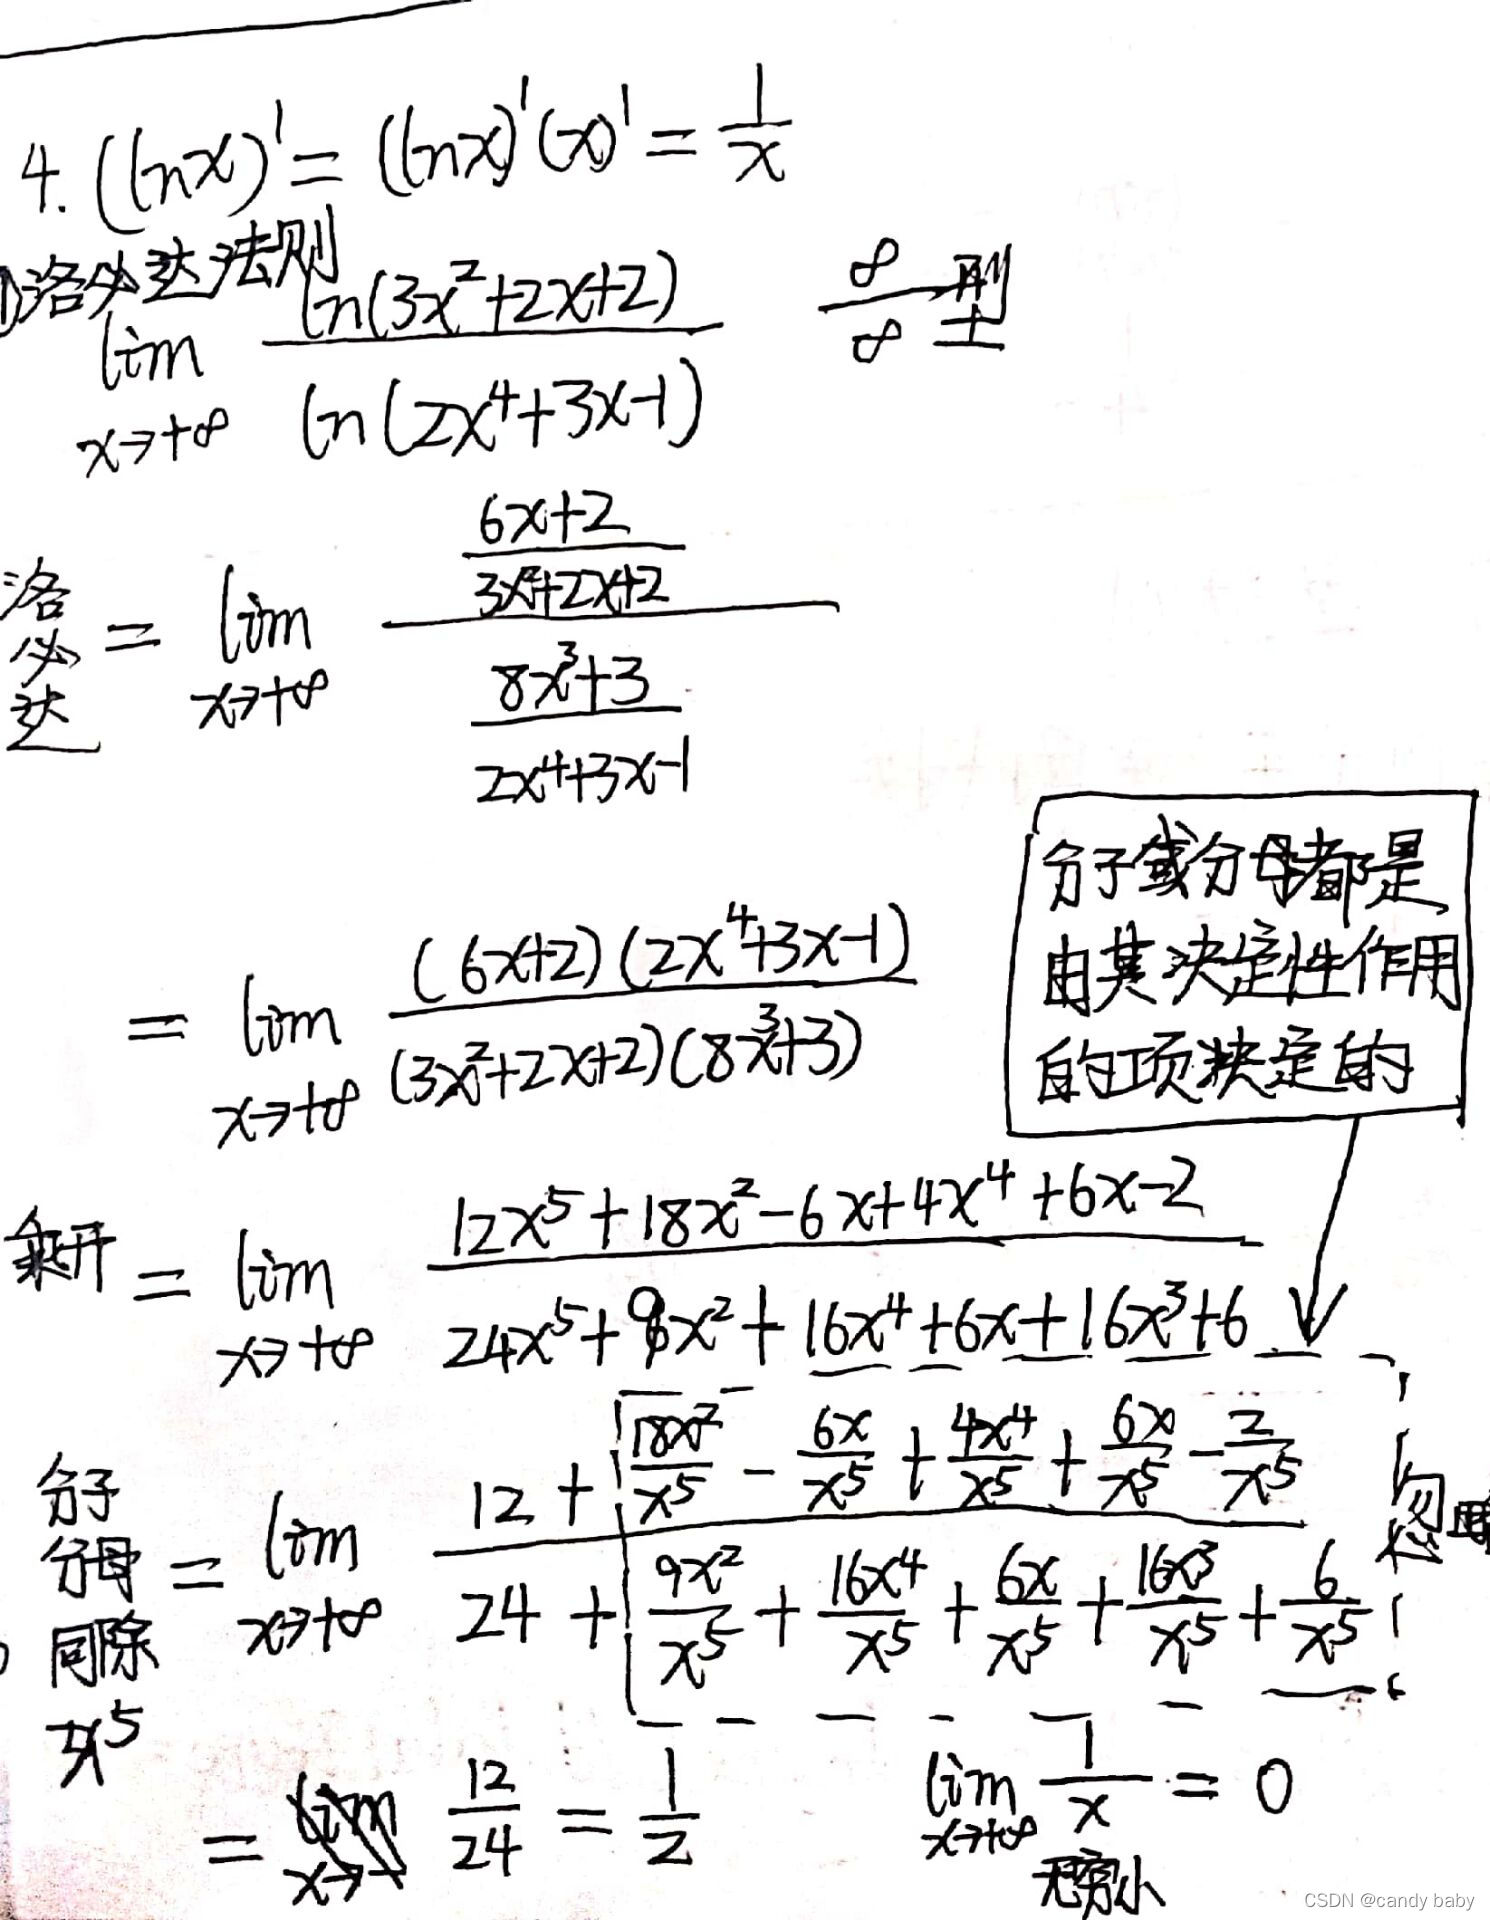 4. (lnx)' = (lnx)'(x)' = 1/x
洛必达法则
lim x→+∞ ln(3x²+2x+2) / ln(2x⁴+3x-1) ∞/∞ 型
洛必达 = lim x→+∞ ((6x+2)/(3x²+2x+2)) / ((8x³+3)/(2x⁴+3x-1))
分子或分母都是
由其决定性作用
的项决定的
= lim x→+∞ (6x+2)(2x⁴+3x-1) / (3x²+2x+2)(8x³+3)
乘开 = lim x→+∞ (12x⁵+18x²-6x+4x⁴+6x-2) / (24x⁵+9x²+16x⁴+6x+16x³+6)
分子分母同除x⁵ = lim x→+∞ (12 + 18x²/x⁵ - 6x/x⁵ + 4x⁴/x⁵ + 6x/x⁵ - 2/x⁵) / (24 + 9x²/x⁵ + 16x⁴/x⁵ + 6x/x⁵ + 16x³/x⁵ + 6/x⁵) 忽略
= 12/24 = 1/2
lim x→+∞ 1/x = 0
无穷小
CSDN @candy baby